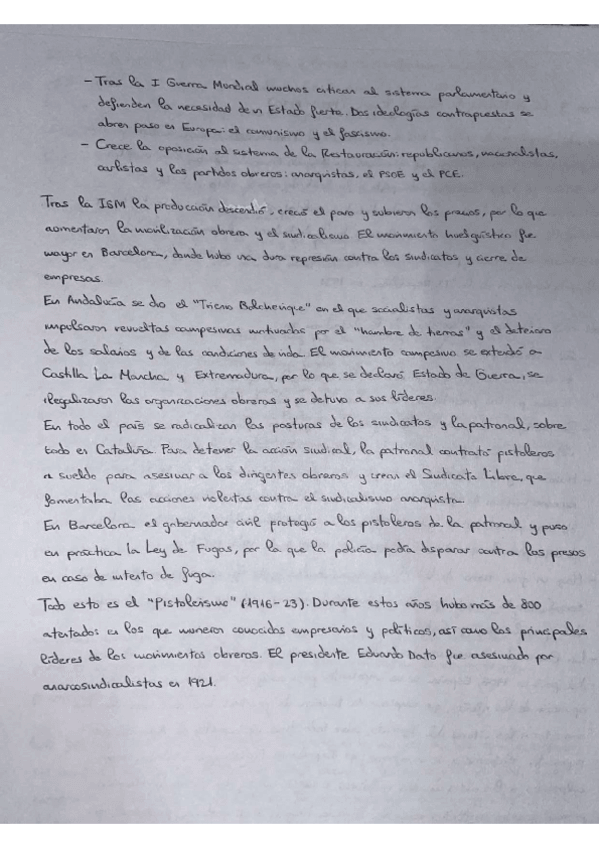 - Tras la I Guerra Mundial muchos critican al sistema parlamentario y
defienden la necesidad de un Estado fuerte. Dos ideologías contrapuestas se
abren paso en Europa: el comunismo y el fascismo.
- Crece la oposición al sistema de la Restauración: republicanos, nacionalistas,
carlistas y los partidos obreros: anarquistas, el PSOE y el PCE.
Tras la IGM la producción descendió, creció el paro y subieron los precios, por lo que
aumentaron la movilización obrera y el sindicalismo El movimiento huelguístico fue
mayor en Barcelona, donde hubo una dura represión contra los sindicatos y cierre de
empresas.
En Andalucía se dio el "Trieno Bolchevique" en el que socialistas y anarquistas
impulsaron revueltas campesinas motivadas por el "hambre de tierras" y el deterioro
de los salarios y de las condiciones de vida. El movimiento campesino se extendió a
Castilla La Mancha y Extremadura, por lo que se declaró Estado de Guerra, se
ilegalizaron las organizaciones obreras y se detuvo a sus líderes.
En todo el país se radicalizan las posturas de los sindicatos y la patronal, sobre
todo en Cataluña. Para detener la acción sindical, la patronal contrató pistoleros
a sueldo para asesinar a los dirigentes obreros y crean el Sindicato Libre, que
fomentaba las acciones violentas contra el sindicalismo anarquista.
En Barcelona el gobernador civil protegió a los pistoleros de la patronal y puso
en práctica la Ley de Fugas, por la que la policía podía disparar contra los presos
en caso de intento de fuga.
Todo esto es el "Pistolerismo" (1916-23). Durante estos años hubo más de 800
atentados en los que murieron conocidos empresarios y políticos, así como los principales
líderes de los movimientos obreros. El presidente Eduardo Dato fue asesinado por
anarcosindicalistas en 1921.